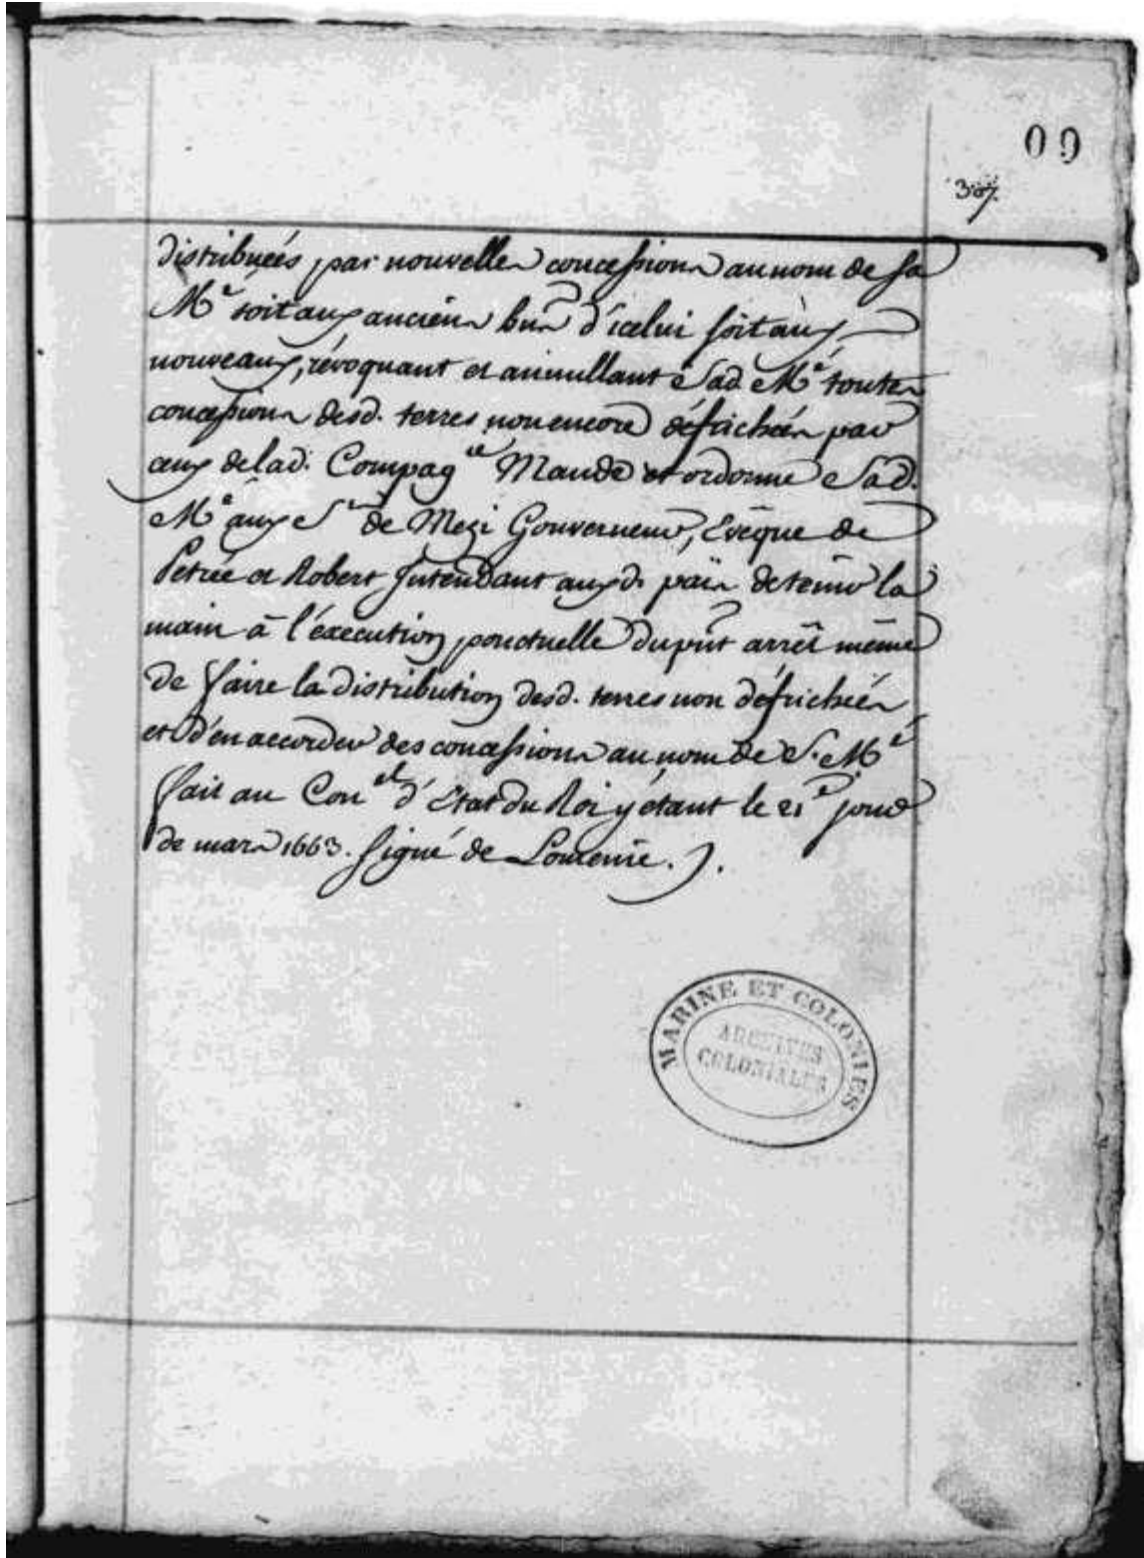 00
307.
distribuées par nouvelles concessions au nom de sa
M.é soit aux anciens hns d'icelui soit aux
nouveaux, révoquant et annullant Sad. M.é toutes
concessions desd. terres non encore défrichées par
ceux de lad. Compag.ie Mande et ordonne Sad.
M.é aux S.rs de Mezi Gouverneur, Evêque de
Petrée et Robert Intendant auxd. païs de tenir la
main à l'execution ponctuelle du pnt arrêt même
de faire la distribution desd. terres non défrichées
et d'en accorder des concessions au nom de S. M.é
fait au Con.el d'Etat du Roi y étant le 21.e jour
de mars 1663. signé de Lomenie. ).
MARINE ET COLONIES
ARCHIVES
COLONIALES